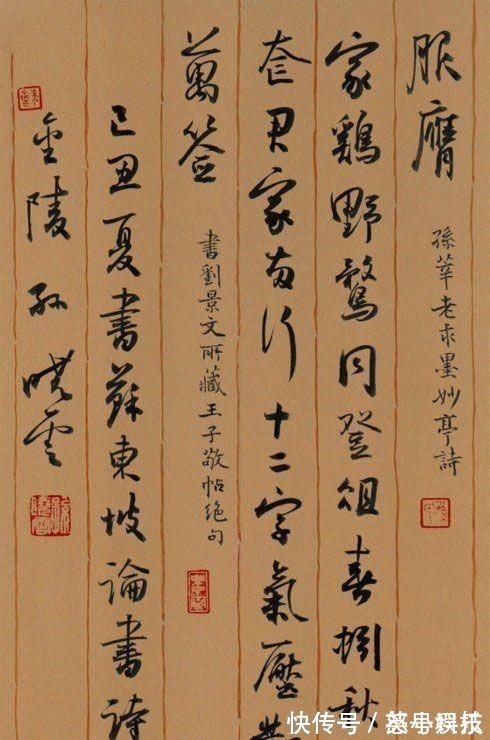 服膺 孫莘老求墨妙亭詩
家鷄野鶩同登俎春蚓秋
奩君家两行十二字氣壓
萬签 書劉景文所藏王子敬帖绝句
己丑夏書蘇東坡論書詩
金陵孙晓雲
快传号／